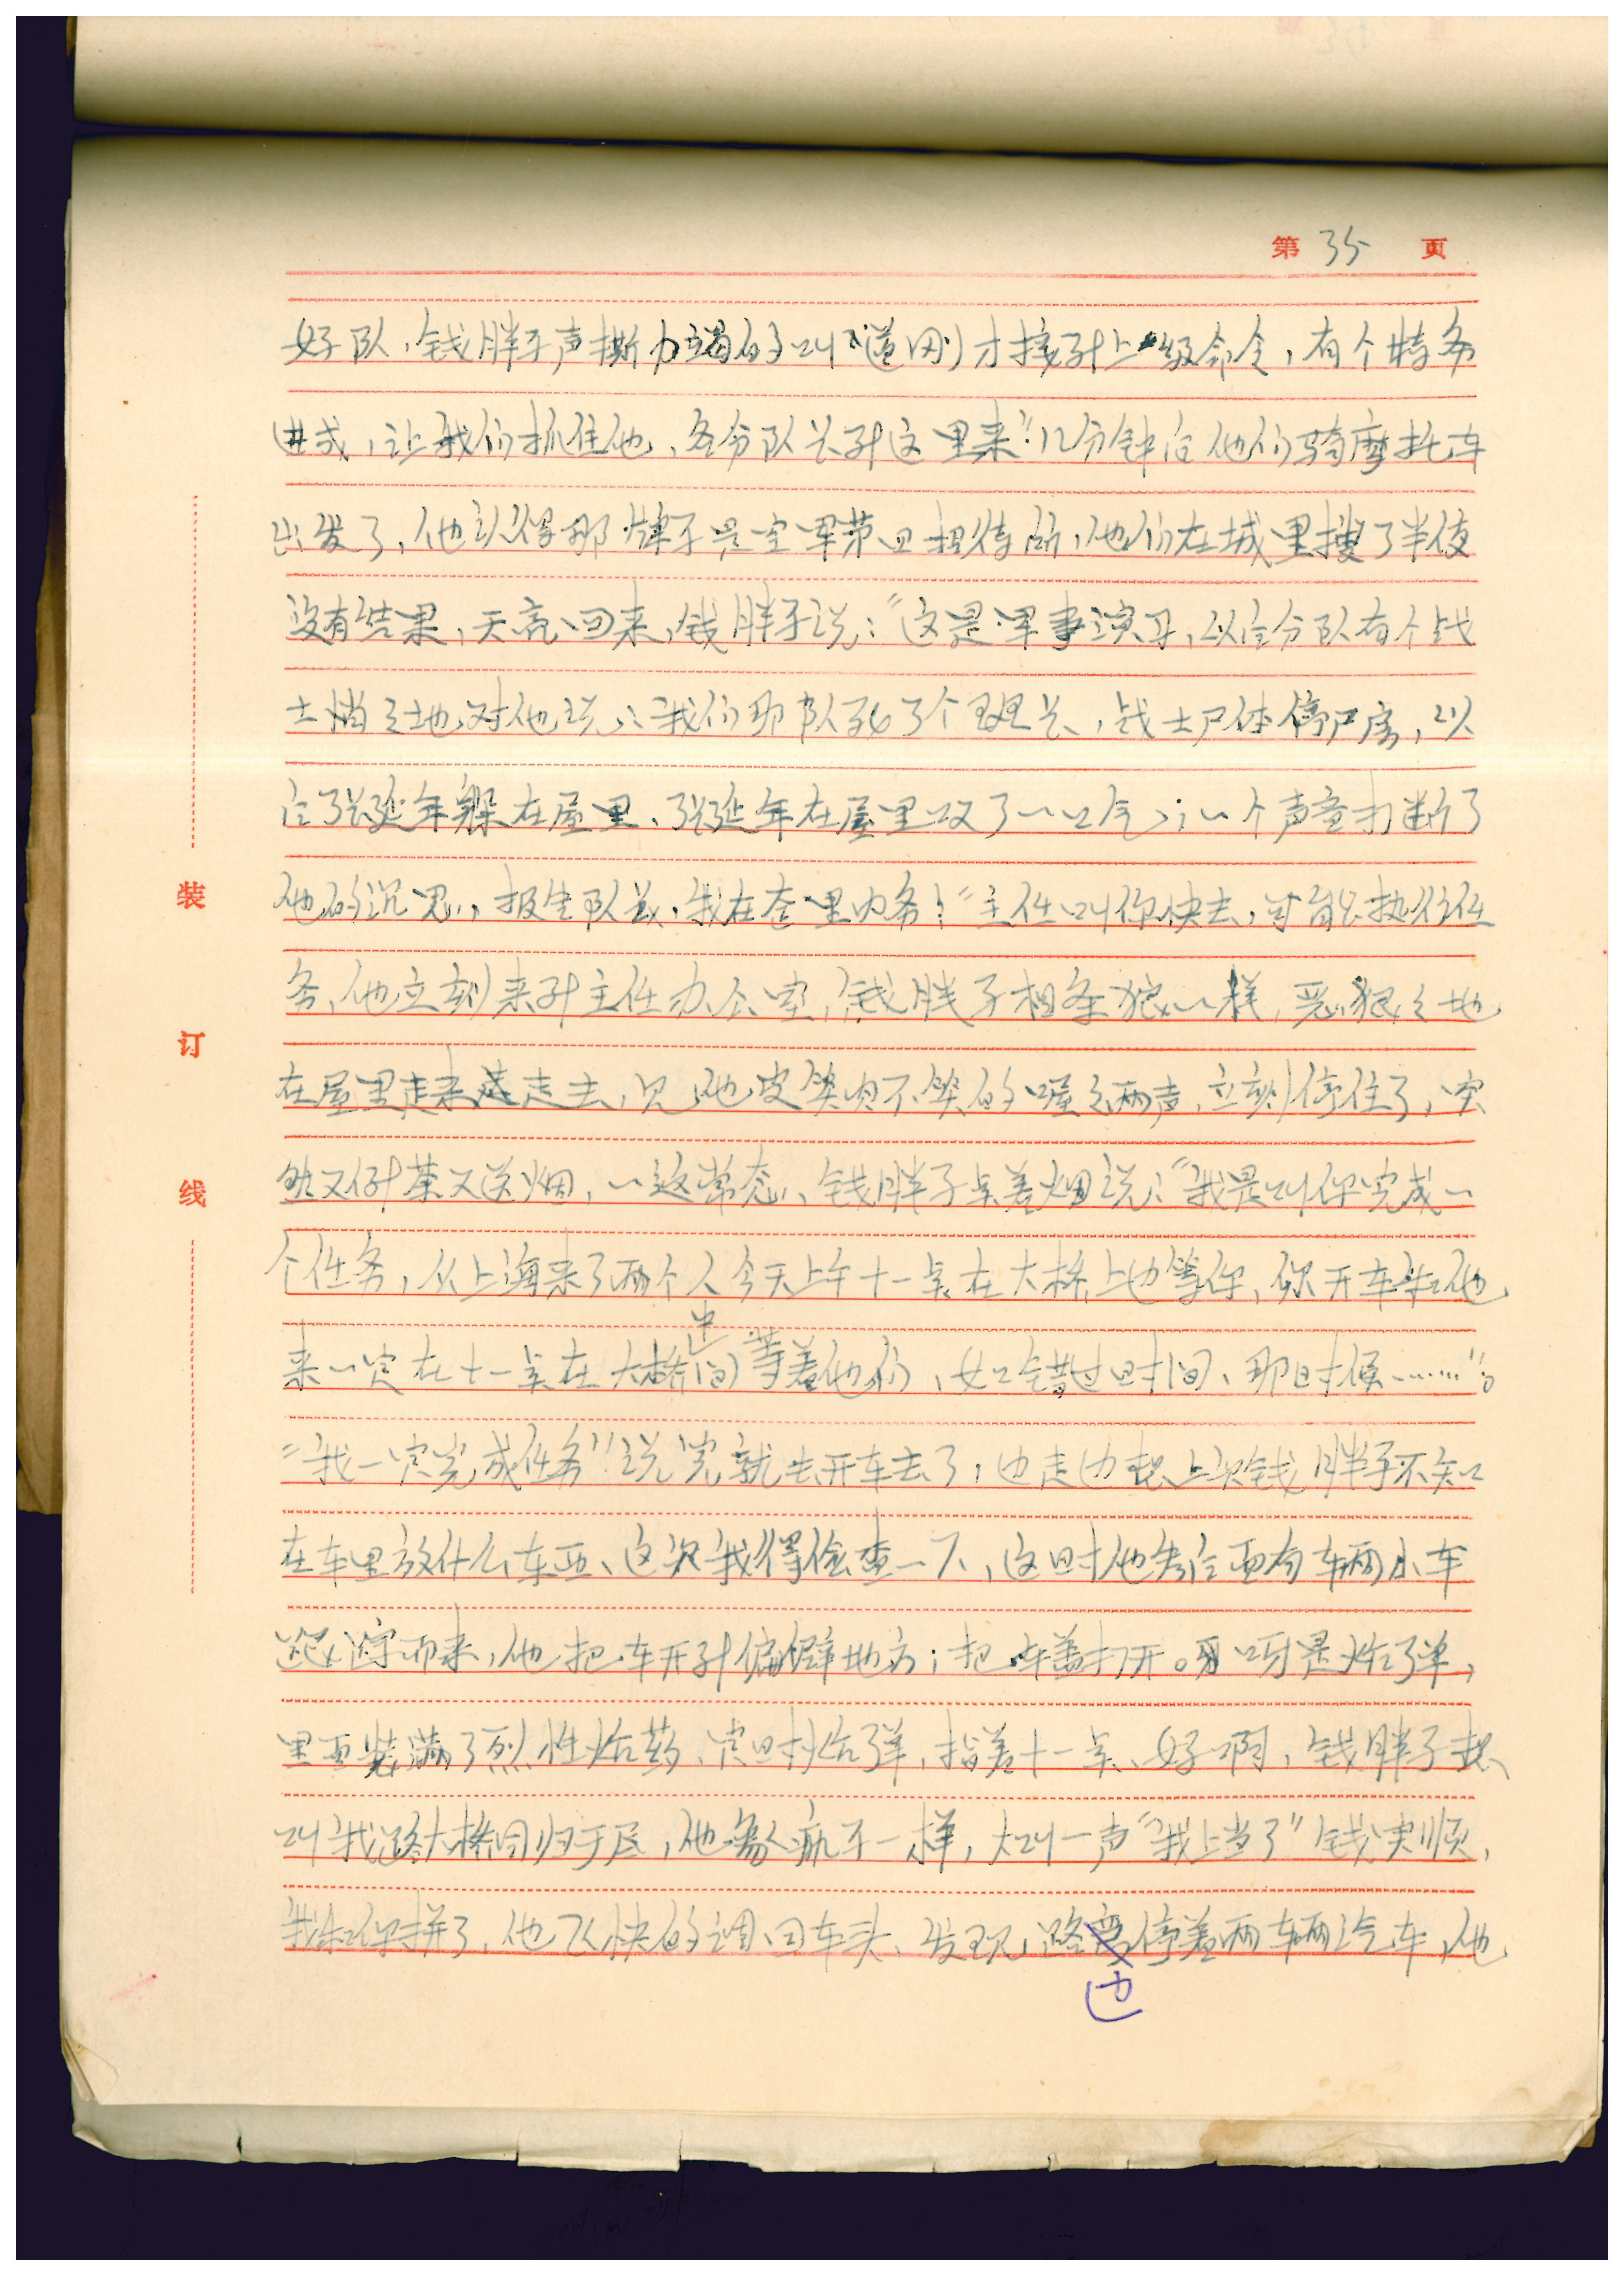 第 35 页
好队，钱胖子声撕力竭的叫道刚才接到上级命令，有个特务
进城，让我们抓住他，各分队长到这里来"几分钟后他们骑摩托车
出发了，他认得那牌子是空军第四招待所，他们在城里搜了半夜
没有结果，天亮回来，钱胖子说："这是军事演习，以后分队有个战
士悄々地对他说：我们那队死了个班长，战士尸体停尸房，以
后张延年躲在屋里、张延年在屋里叹了一口气；一个声音打断了
他的沉思，报告队长，我在查里内务！"主任叫你快去，可能执行任
务，他立刻来到主任办公室，钱胖子相条狼一样，恶狠々地
在屋里走来走去，见他皮笑肉不笑的嘿々两声，立刻停住了，突
然又倒茶又送烟，一返常态、钱胖子点着烟说："我是叫你完成一
个任务，从上海来了两个人今天上午十一点在大桥上边等你，你开车和他
来一定在十一点在大桥中间等着他们，如错过时间、那时候……"。
"我一定完成任务"！说完就去开车去了，边走边想上次钱胖子不知
在车里放什么东西、这次我得检查一下，这时他先后面有辆小车
跟踪而来，他把车开到偏僻地方；把车盖打开。呀是炸弹，
里面装满了烈性炸药、定时炸弹，指着十一点、好啊，钱胖子想
叫我跟大桥同归于尽，他象疯子一样，大叫一声"我上当了"钱实顺，
我和你拼了，他飞快的调回车头、发现路边停着两辆汽车，他
装
订
线